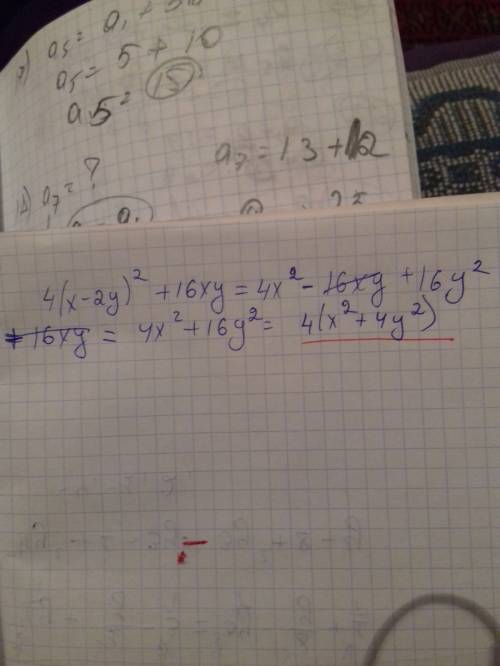 a₅ = a₁ +
a₅ = 5 + 10
a5 = 15
a₇ = 13 + 12
a₇ = ?
4(x-2y)² + 16xy = 4x² - 16xy + 16y²
+ 16xy = 4x² + 16y² = 4(x² + 4y²)